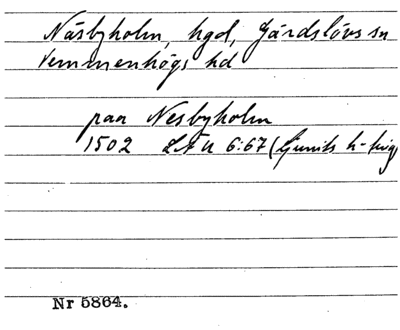 Näsbyholm, hgd, Gärdslövs sn
Vemmenhögs hd
paa Nesbyholm
1502 LÅU 6:67 (Ljunits h-
Nr 5864.